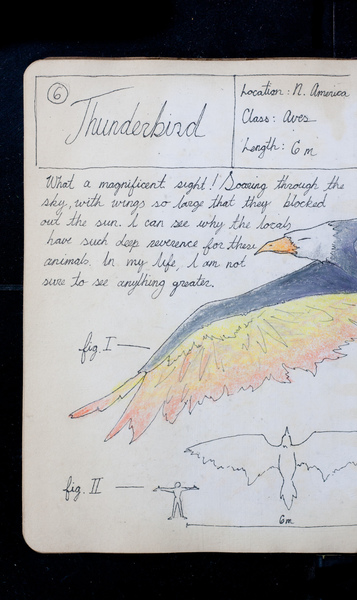 6
Thunderbird
Location: N. America
Class: Aves
Length: 6 m
What a magnificent sight! Soaring through the
sky, with wings so large that they blocked
out the sun. I can see why the locals
have such deep reverence for these
animals. In my life, I am not
sure to see anything greater.
fig. I
fig. II
6m